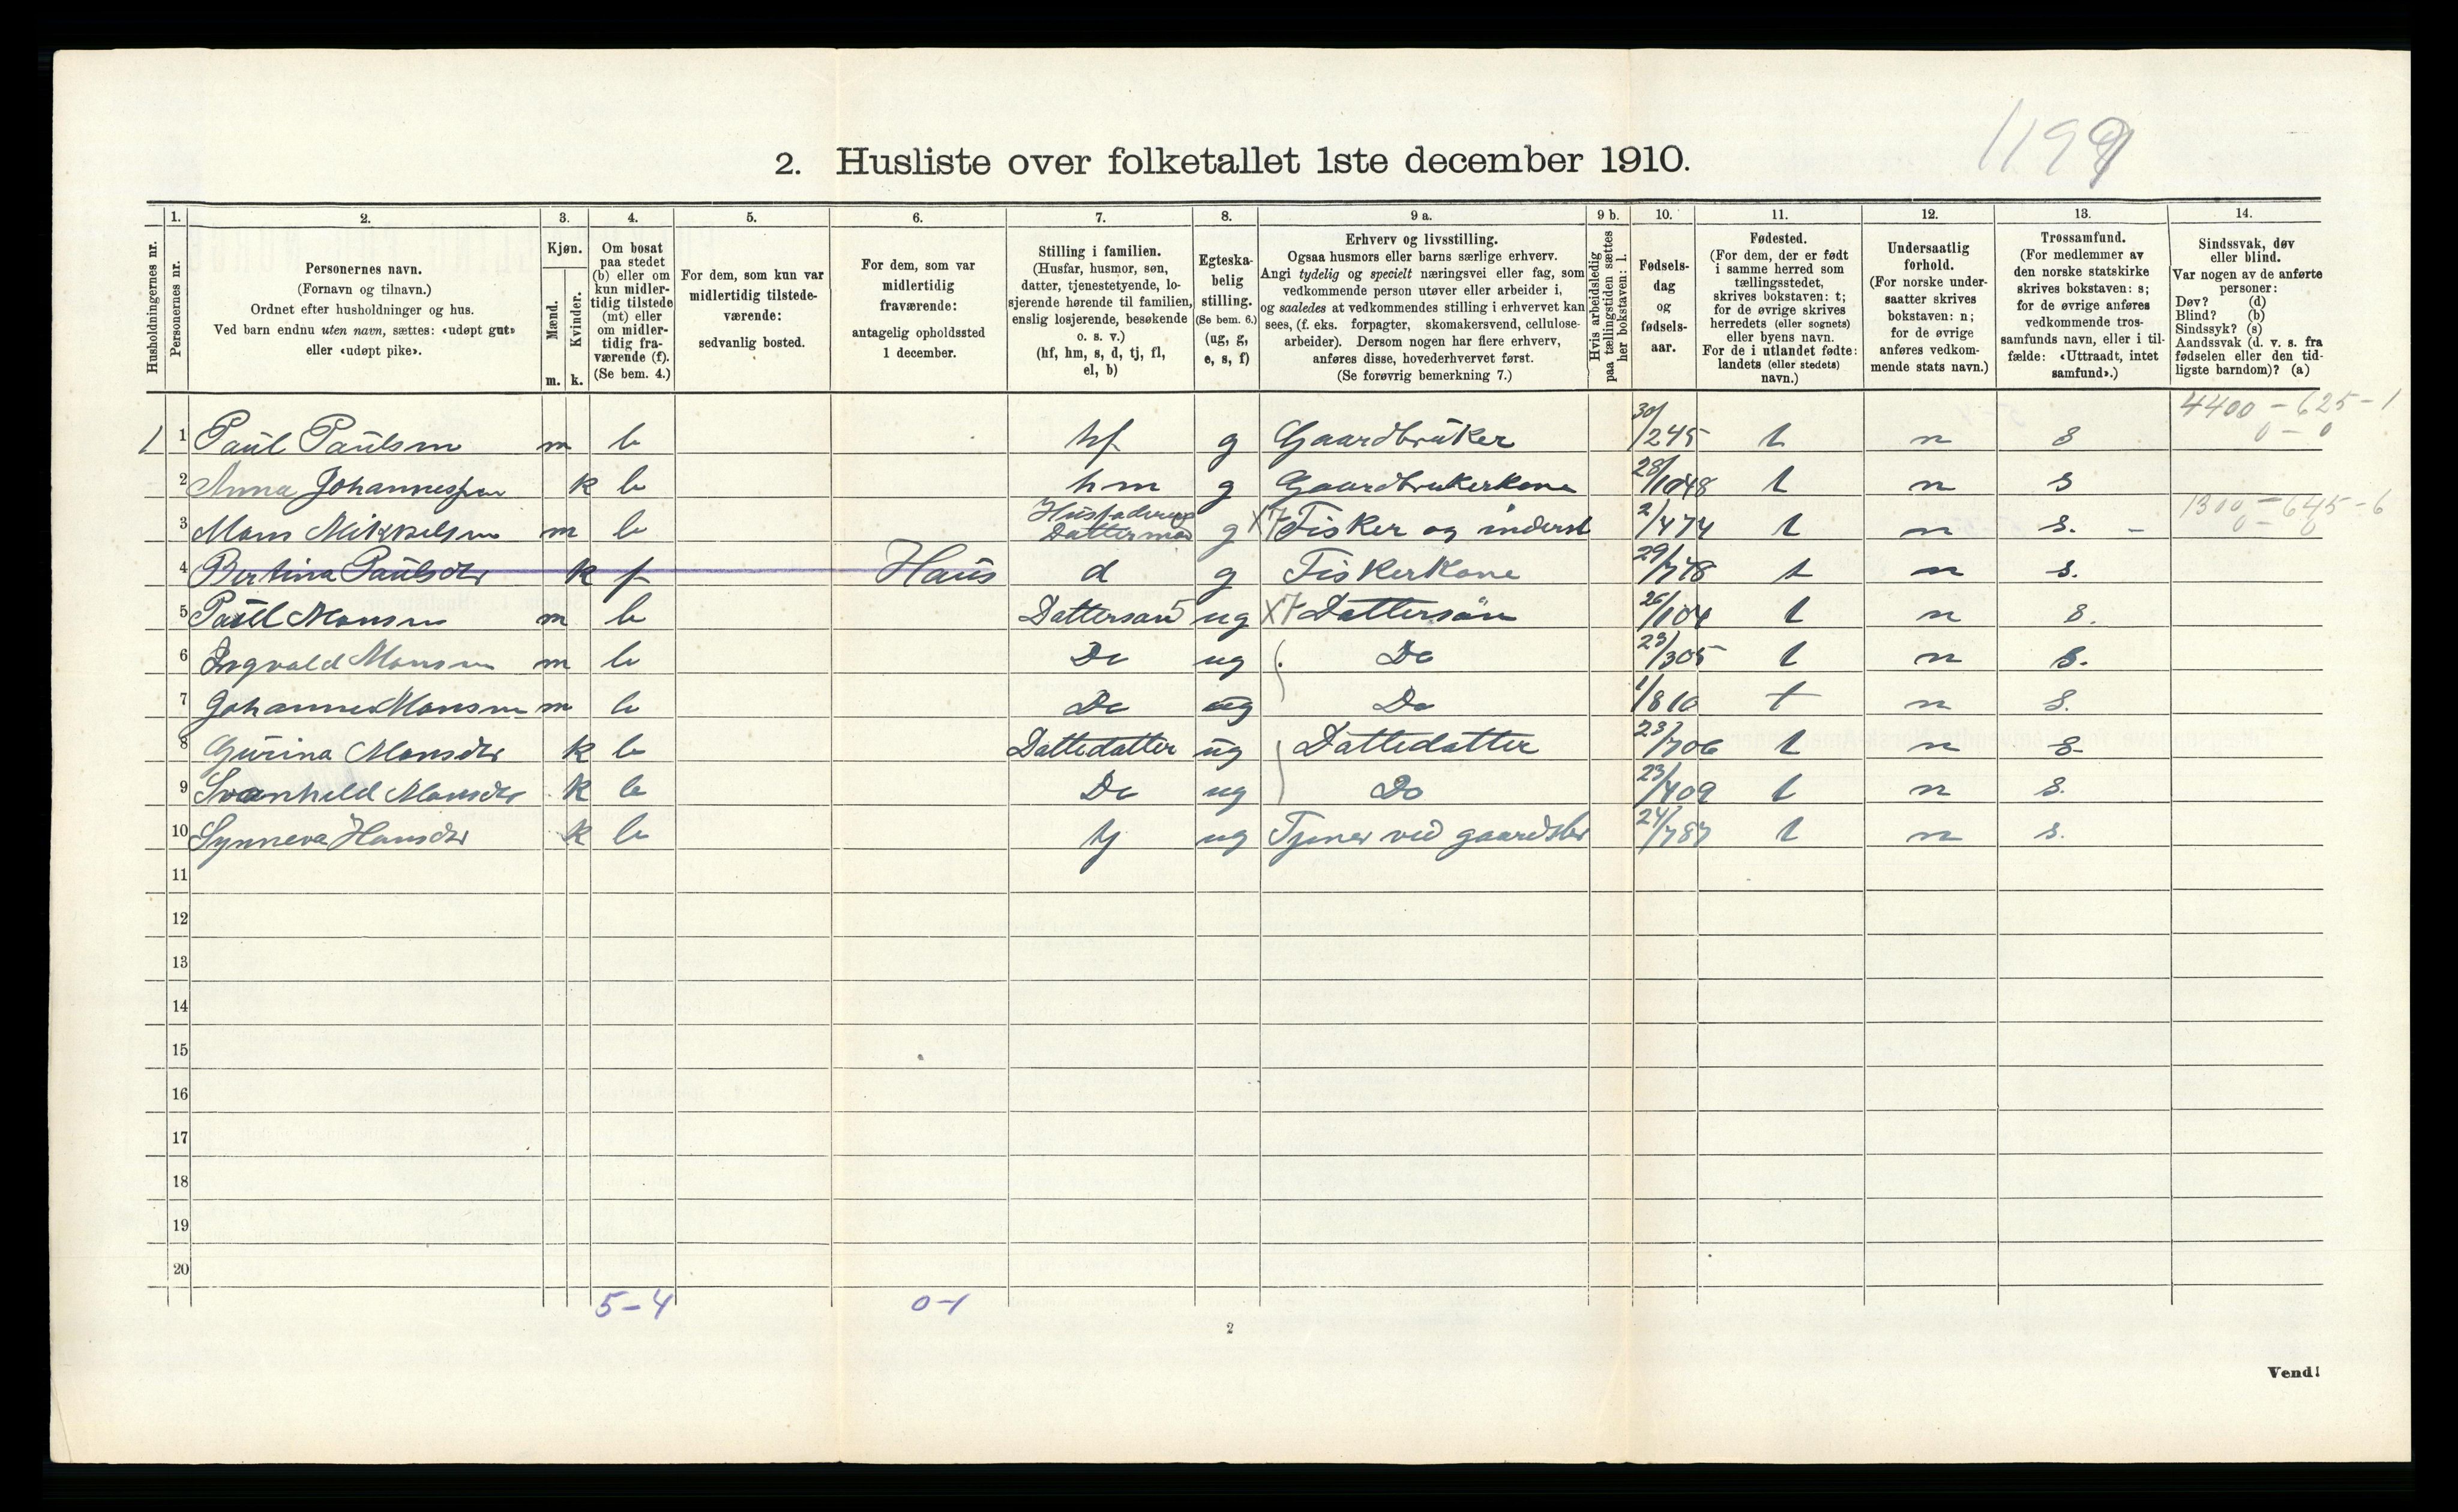 1199
2. Husliste over folketallet 1ste december 1910.
1. 2. 3. 4. 5. 6. 7. 8. 9 a. 9 b. 10. 11. 12. 13. 14.
Husholdningernes nr.
Personernes nr.
Personernes navn.
(Fornavn og tilnavn.)
Ordnet efter husholdninger og hus.
Ved barn endnu uten navn, sættes: «udøpt gut»
eller «udøpt pike».
Kjøn.
Mænd.
Kvinder.
m. k.
Om bosat
paa stedet
(b) eller om
kun midler-
tidig tilstede
(mt) eller
om midler-
tidig fra-
værende (f).
(Se bem. 4.)
For dem, som kun var
midlertidig tilstede-
værende:
sedvanlig bosted.
For dem, som var
midlertidig
fraværende:
antagelig opholdssted
1 december.
Stilling i familien.
(Husfar, husmor, søn,
datter, tjenestetyende, lo-
sjerende hørende til familien,
enslig losjerende, besøkende
o. s. v.)
(hf, hm, s, d, tj, fl,
el, b)
Egteska-
belig
stilling.
(Se bem. 6.)
(ug, g,
e, s, f)
Erhverv og livsstilling.
Ogsaa husmors eller barns særlige erhverv.
Angi tydelig og specielt næringsvei eller fag, som
vedkommende person utøver eller arbeider i,
og saaledes at vedkommendes stilling i erhvervet kan
sees, (f. eks. forpagter, skomakersvend, cellulose-
arbeider). Dersom nogen har flere erhverv,
anføres disse, hovederhvervet først.
(Se forøvrig bemerkning 7.)
Hvis arbeidsledig
paa tællingstiden sættes
her bokstaven: l.
Fødsels-
dag
og
fødsels-
aar.
Fødested.
(For dem, der er født
i samme herred som
tællingsstedet,
skrives bokstaven: t;
for de øvrige skrives
herredets (eller sognets)
eller byens navn.
For de i utlandet fødte:
landets (eller stedets)
navn.)
Undersaatlig
forhold.
(For norske under-
saatter skrives
bokstaven: n;
for de øvrige
anføres vedkom-
mende stats navn.)
Trossamfund.
(For medlemmer av
den norske statskirke
skrives bokstaven: s;
for de øvrige anføres
vedkommende tros-
samfunds navn, eller i til-
fælde: «Uttraadt, intet
samfund».)
Sindssvak, døv
eller blind.
Var nogen av de anførte
personer:
Døv? (d)
Blind? (b)
Sindssyk? (s)
Aandssvak (d. v. s. fra
fødselen eller den tid-
ligste barndom)? (a)
4400 - 625 - 1
0 - 0
1 1 Paul Paulsen m b hf g Gaardbruker 30/2 45 t n s
2 Anna Johannesen k b hm g Gaardbrukerkone 28/10 48 t n s
1300 - 645 - 6
0 - 0
3 Mons Mikkelsen m b Dattermand g X7 Fisker og inderst 2/4 74 t n s. -
4 Bertina Paulsdtr k f Haus d g Fiskerkone 29/7 78 t n s.
5 Paul Monsen m b Dattersøn 5 ug X7 Dattersøn 26/1 04 t n s.
6 Ingvald Monsen m b Do ug Do 23/3 05 t n s.
7 Johannes Monsen m b Do ug Do 1/8 10 t n s.
8 Gurina Monsdtr k b Dattedatter ug Dattedatter 23/7 06 t n s.
9 Svanhild Monsdtr k b Do ug Do 23/4 09 t n s.
10 Synneva Hansdtr k b tj ug Tjener ved gaardsbr 24/7 87 t n s.
11
12
13
14
15
16
17
18
19
20
5-4 0-1
2
Vend!